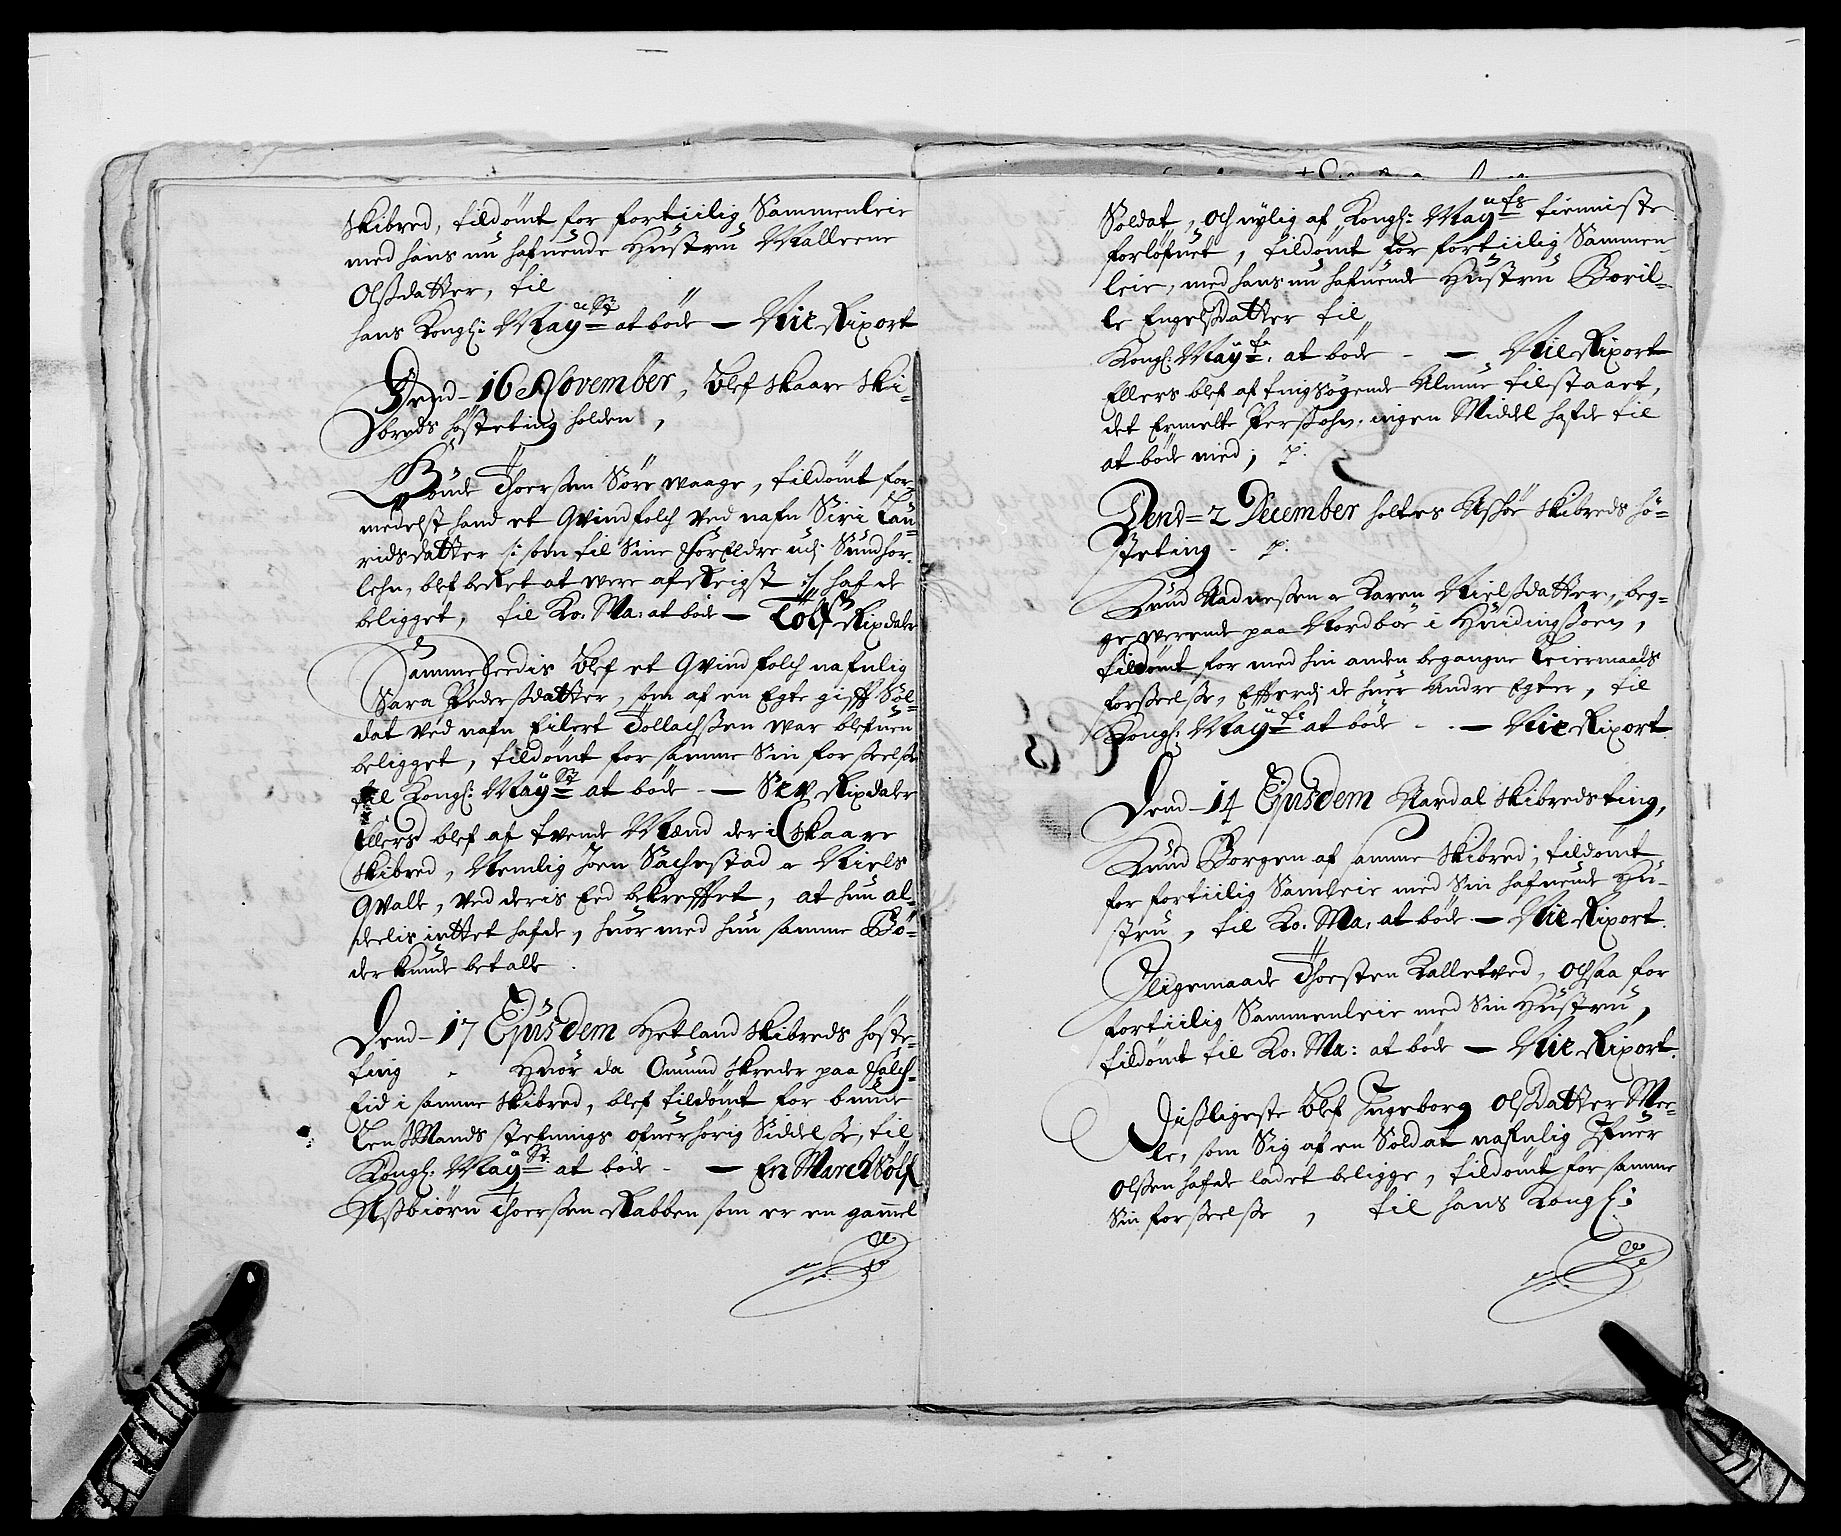 Skibred, tildømt for fortiilig Sammenleie
med hans nu hafuende Hustru Malleene
Olsdatter, til
hans Kongl: Mayst at bøde — Niie Rixort
Dend - 16 November, blef Skaare Ski-
breds høsteting holden,
Gude Thoersen Sørewaage, tildømt for-
medelst hand et Qvindfolch ved nafn Siri Lau-
ridsdatter /: som til Sine ForEldre udj Sundhor-
lehn, blef berettet at were afreigst :/ hafde
beligget, til Ko: Ma: at bøde — Tolf Rixdaler
Sammeledis blef et Qvindfolch nafnlig
Sara Pedersdatter, som af en Egte gifft Sol-
dat ved nafn Eilert Tollachssen war blefuen
beligget, tildømt for samme Sin forseelse
til Kongl: Mayst at bøde — Sex Rixdaler
Ellers blef af tvende Mænd der i Skaare
Skibred, Nemlig Joen Sachestad & Niels
Qvale, ved deris Eed bekrefftet, at hun al-
deelis intttet hafde, huormed hun samme Bø-
der kunde betalle.
Dend - 17 Ejusdem Hetland Skibreds høste-
ting Huor da Omund Skreder paa Falch-
Eid i samme Skibred, blef tildømt for bunde
LensMands stefnings ofuerhørig Siddelse, til
Kongl: Mayst at bøde — En March Sølf
Assbiørn Thoersen Rabben som er en gammel
Soldat, och nylig af Kongl: Mayts tienniste
forlofuet, tildømt for fortiilig Sammen-
leie, med hans nu hafuende Hustru Boril-
le Engelsdatter til
Kongl: Mayt: at bøde — Niie Rixort
Ellers blef af tingsøgende Almue tilstaaet,
det Ermelte Persohn, ingen Middel hafde til
at bøde med,
Dend = 2 December holtes Ashøe Skibreds hø-
steting
Knud Aadnessen & Karen Nielsdatter, beg-
ge werende paa Nordbøe i Hundingsoen,
tildømt for med hin anden begangne Leiermaals
forseelse, Effterdj de huer Andre Egter, til
Kongl: Mayts at bøde — Niie Rixort
Dend - 14 Ejusdem Aardal Skibredsting,
Knud Borgen af samme Skibred, tildømt
for fortiilig Samleie med Sin hafuende Hu-
stru, til Ko: Ma: at bøde — Niie Rixort
Iligemaade Thoersten Kalletved, ochsaa for
fortiilig Sammenleie med Sin Hustru,
tildømt til Ko: Ma: at bøde — Niie Rixort
Disligeste blef Ingeborg Olsdatter Mee-
le, som Sig af en Soldat nafnlig Ifuer
Olsen hafde ladet beligge, tildømt for samme
Sin forseelse, til hans Kongl: